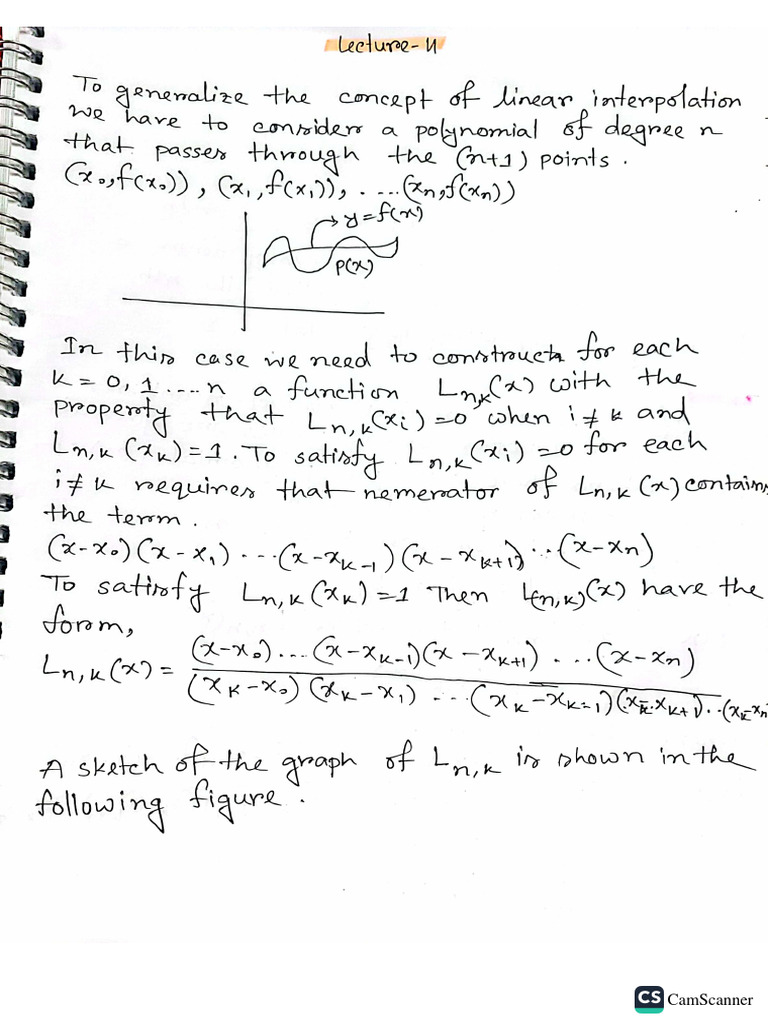 Lecture-4
To generalize the concept of linear interpolation
we have to consider a polynomial of degree n
that passes through the (n+1) points.
(x₀,f(x₀)), (x₁,f(x₁)), ....(xₙ,f(xₙ))
y=f(x)
P(x)
In this case we need to construct for each
K=0,1....n a function Lₙ,ₖ(x) with the
property that Lₙ,ₖ(xᵢ)=0 when i≠k and
Lₙ,ₖ(xₖ)=1. To satisfy Lₙ,ₖ(xᵢ)=0 for each
i≠k requires that nemerator of Lₙ,ₖ(x) contains
the term.
(x-x₀)(x-x₁)...(x-xₖ₋₁)(x-xₖ₊₁)...(x-xₙ)
To satisfy Lₙ,ₖ(xₖ)=1 Then L(n,k)(x) have the
form,
Lₙ,ₖ(x) = (x-x₀)...(x-xₖ₋₁)(x-xₖ₊₁)...(x-xₙ)
(xₖ-x₀)(xₖ-x₁)...(xₖ-xₖ₋₁)(xₖ-xₖ₊₁)..(xₖ-xₙ)
A sketch of the graph of Lₙ,ₖ is shown in the
following figure.
CS CamScanner